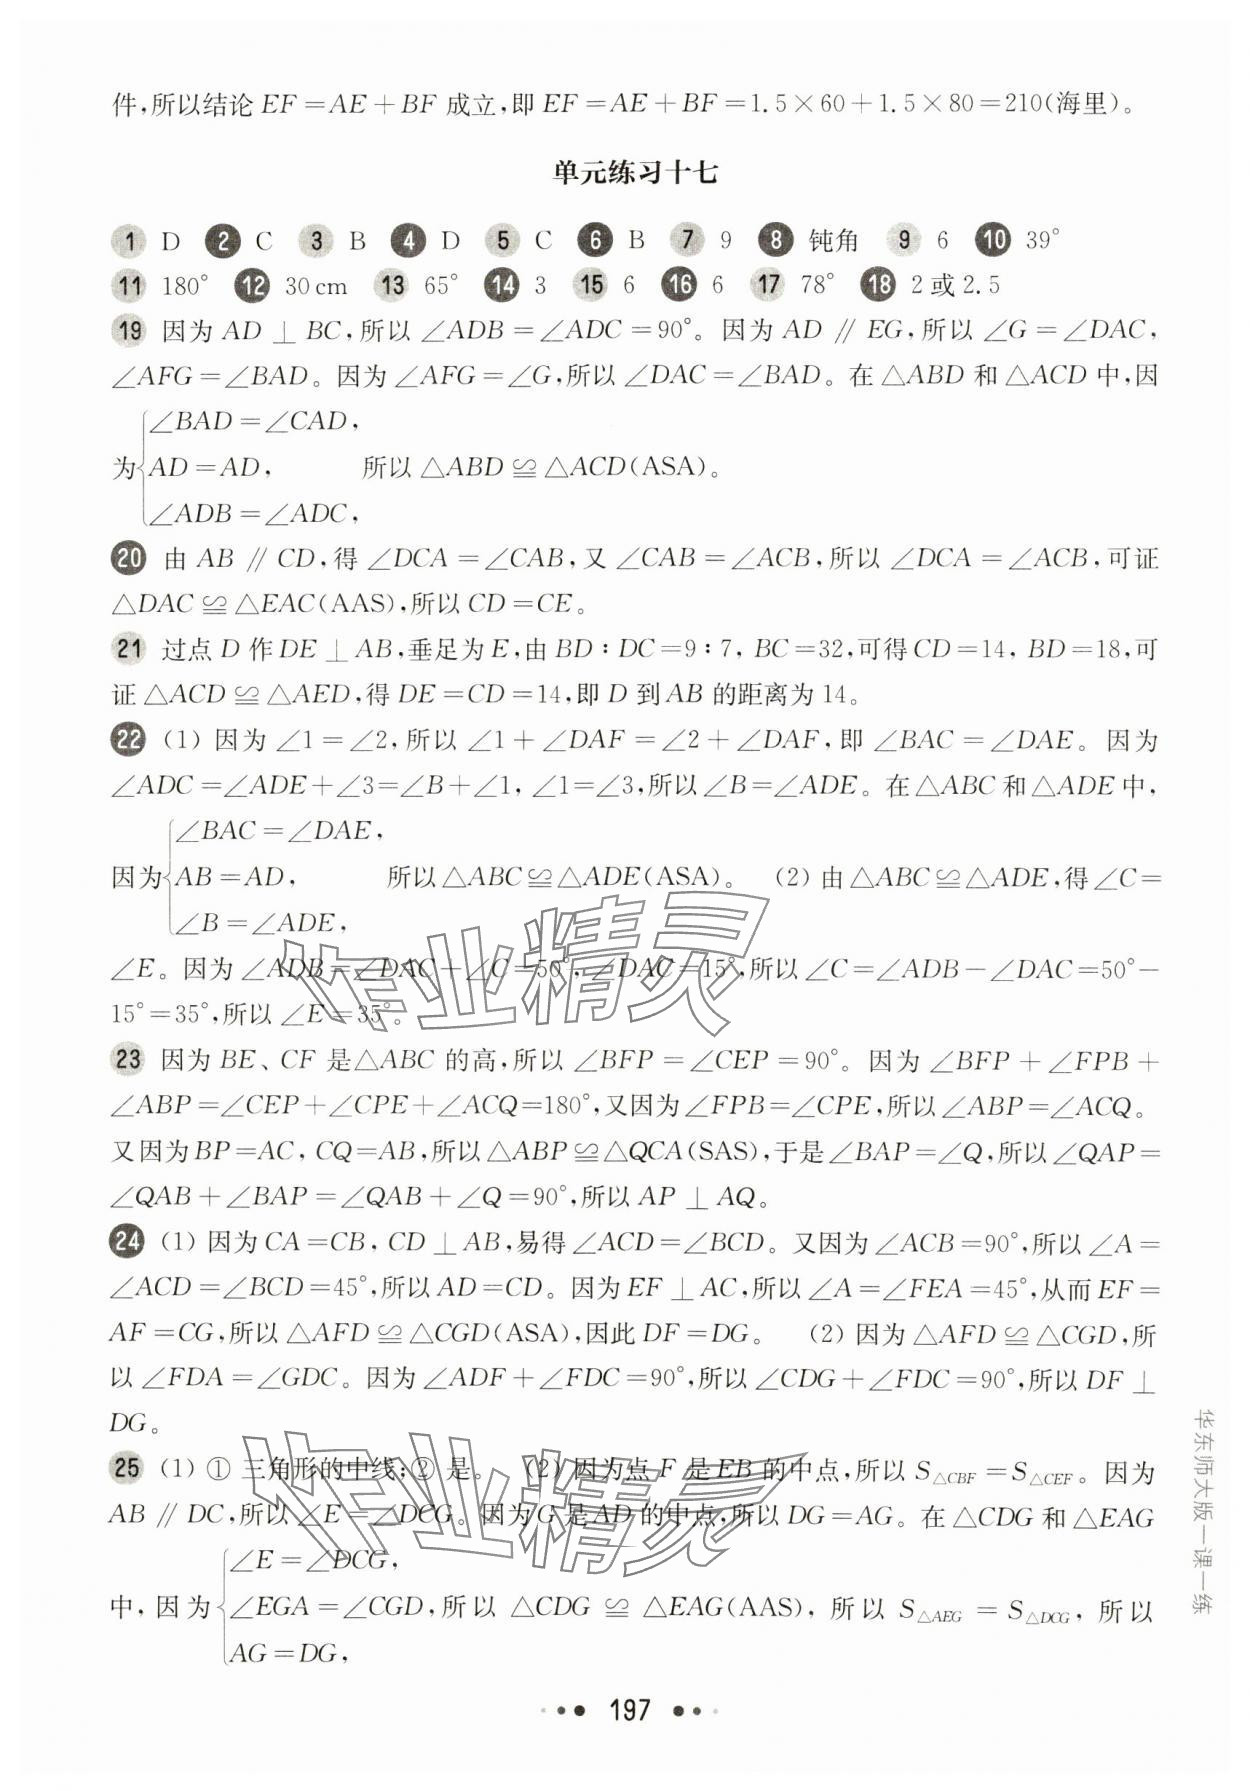 件，所以结论 EF＝AE＋BF 成立，即 EF＝AE＋BF＝1.5×60＋1.5×80＝210(海里)。
单元练习十七
1 D 2 C 3 B 4 D 5 C 6 B 7 9 8 钝角 9 6 10 39°
11 180° 12 30 cm 13 65° 14 3 15 6 16 6 17 78° 18 2或2.5
19 因为 AD⊥BC，所以∠ADB＝∠ADC＝90°。因为 AD∥EG，所以∠G＝∠DAC，
∠AFG＝∠BAD。因为∠AFG＝∠G，所以∠DAC＝∠BAD。在△ABD 和△ACD 中，因
∠BAD＝∠CAD，
为 AD＝AD， 所以△ABD≌△ACD(ASA)。
∠ADB＝∠ADC，
20 由 AB∥CD，得∠DCA＝∠CAB，又∠CAB＝∠ACB，所以∠DCA＝∠ACB，可证
△DAC≌△EAC(AAS)，所以 CD＝CE。
21 过点 D 作 DE⊥AB，垂足为 E，由 BD∶DC＝9∶7，BC＝32，可得 CD＝14，BD＝18，可
证△ACD≌△AED，得 DE＝CD＝14，即 D 到 AB 的距离为 14。
22 (1) 因为∠1＝∠2，所以∠1＋∠DAF＝∠2＋∠DAF，即∠BAC＝∠DAE。因为
∠ADC＝∠ADE＋∠3＝∠B＋∠1，∠1＝∠3，所以∠B＝∠ADE。在△ABC 和△ADE 中，
∠BAC＝∠DAE，
因为 AB＝AD， 所以△ABC≌△ADE(ASA)。 (2) 由△ABC≌△ADE，得∠C＝
∠B＝∠ADE，
∠E。因为∠ADB＝∠DAC＋∠C＝50°，∠DAC＝15°，所以∠C＝∠ADB－∠DAC＝50°－
15°＝35°，所以∠E＝35°。
23 因为 BE、CF 是△ABC 的高，所以∠BFP＝∠CEP＝90°。因为∠BFP＋∠FPB＋
∠ABP＝∠CEP＋∠CPE＋∠ACQ＝180°，又因为∠FPB＝∠CPE，所以∠ABP＝∠ACQ。
又因为 BP＝AC，CQ＝AB，所以△ABP≌△QCA(SAS)，于是∠BAP＝∠Q，所以∠QAP＝
∠QAB＋∠BAP＝∠QAB＋∠Q＝90°，所以 AP⊥AQ。
24 (1) 因为 CA＝CB，CD⊥AB，易得∠ACD＝∠BCD。又因为∠ACB＝90°，所以∠A＝
∠ACD＝∠BCD＝45°，所以 AD＝CD。因为 EF⊥AC，所以∠A＝∠FEA＝45°，从而 EF＝
AF＝CG，所以△AFD≌△CGD(ASA)，因此 DF＝DG。 (2) 因为△AFD≌△CGD，所
以∠FDA＝∠GDC。因为∠ADF＋∠FDC＝90°，所以∠CDG＋∠FDC＝90°，所以 DF⊥
DG。
25 (1) ① 三角形的中线；② 是。 (2) 因为点 F 是 EB 的中点，所以 S△CBF＝S△CEF。因为
AB∥DC，所以∠E＝∠DCG。因为 G 是 AD 的中点，所以 DG＝AG。在△CDG 和△EAG
∠E＝∠DCG，
中，因为 ∠EGA＝∠CGD，所以△CDG≌△EAG(AAS)，所以 S△AEG＝S△DCG，所以
AG＝DG，
197
华东师大版一课一练
作业精灵
作业精灵